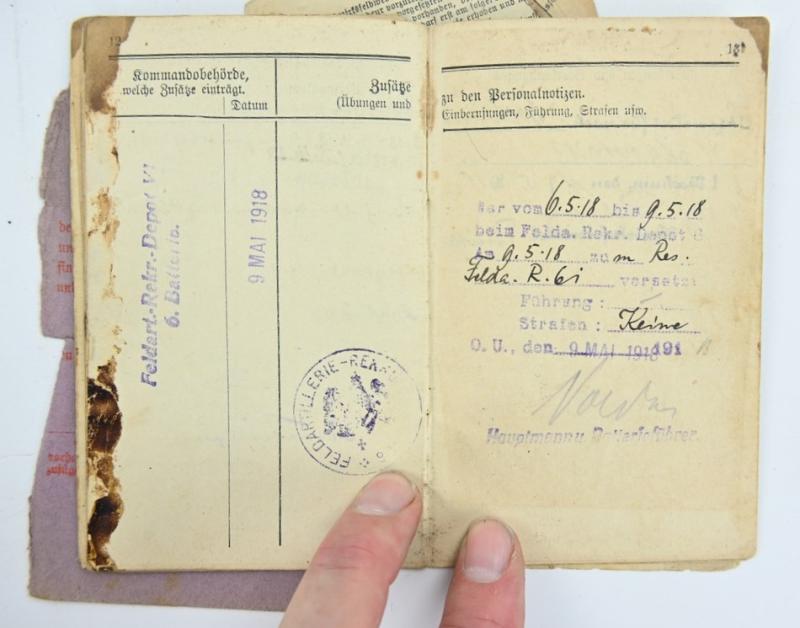 12
Kommandobehörde,
welche Zusätze einträgt.
Datum
Zusätze
(Übungen und
Feldart.-Rekr.-Depot VI
6. Batterie.
9 MAI 1918
FELDARTILLERIE-REKR
13
zu den Personalnotizen.
Einberufungen, Führung, Strafen usw.
War vom 6.5.18 bis 9.5.18
beim Felda. Rekr. Depot 6
Am 9.5.18 zum Res.
Felda. R. 61 versetzt
Führung:
Strafen: Keine
O. U., den 9 MAI 1918 191
Hauptmann u Batterieführer.